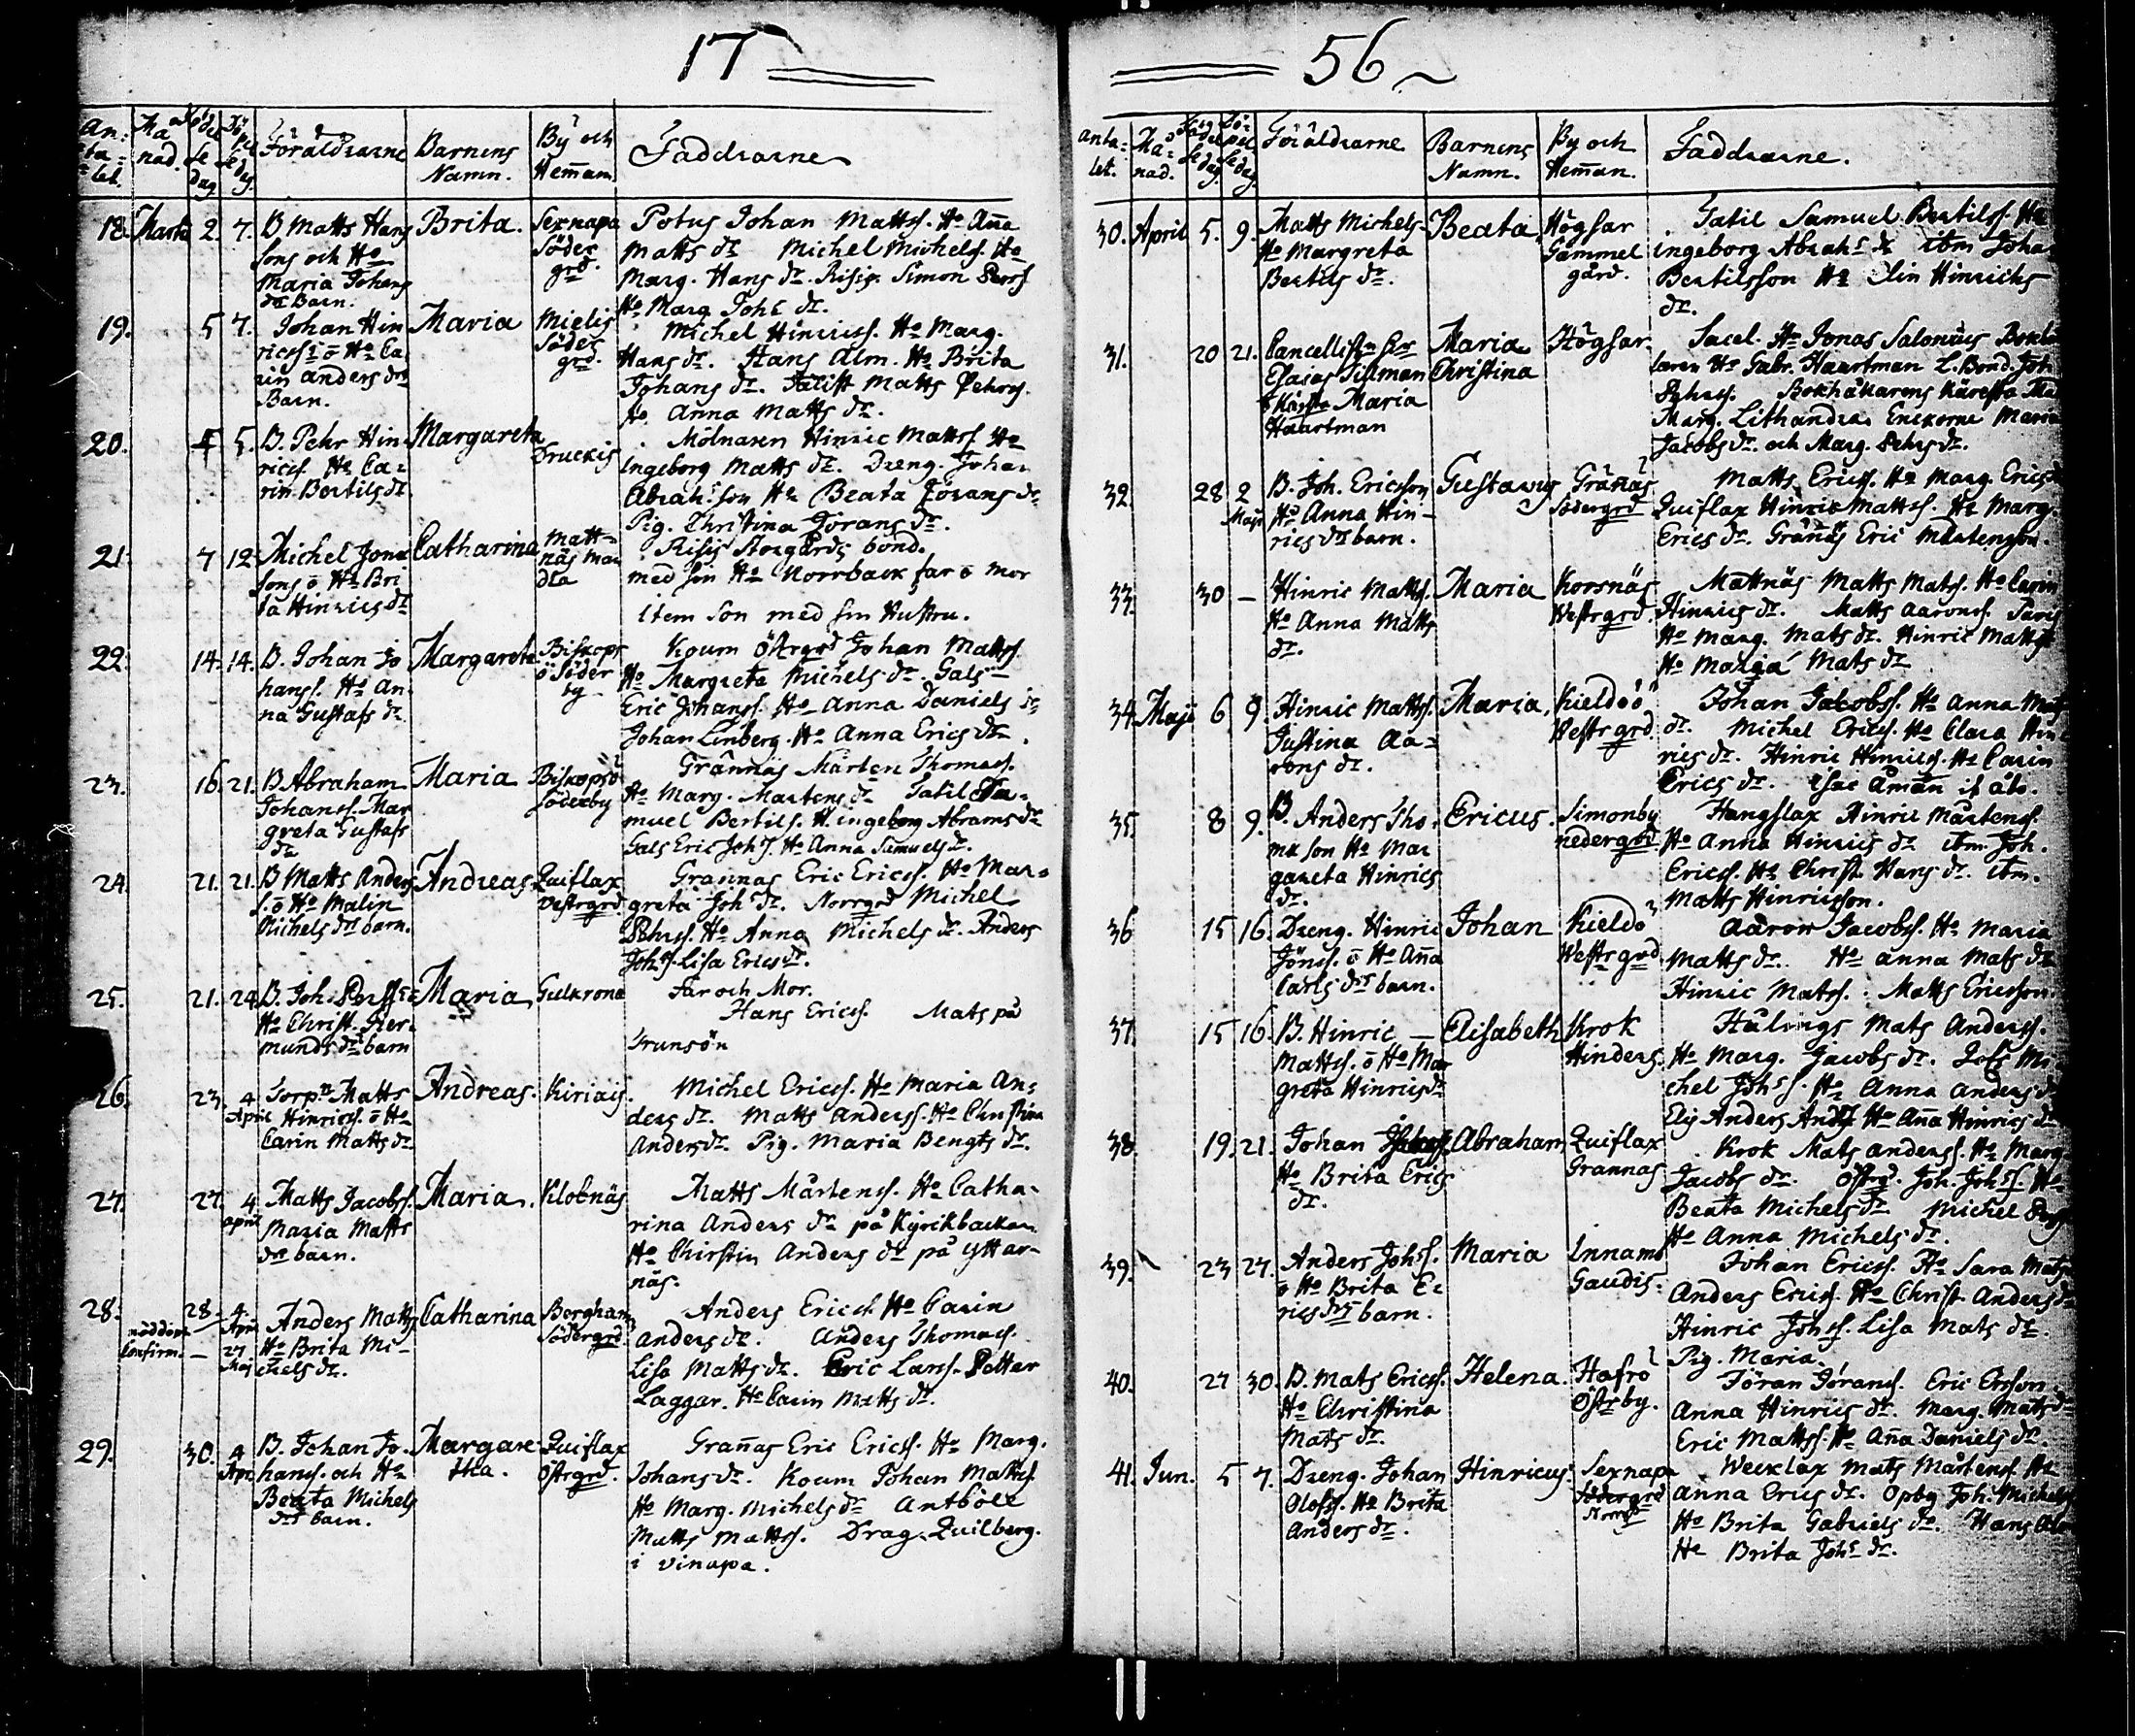 17
An:
ta=
let.
Må
nad.
Föde
lse
dag
Dö
pel
sed
ag.
Föräldrarne
Barnens
Namn.
By och
Hem̄an
Faddrarne
18. Martii 2. 7. B Matts Hans
sons och Ho
Maria Johans
dr Barn.
Brita.
Sexnapa
Söder
grd.
Potus Johan Mattss. Ho Ana
Matts dr Michel Michels. Ho
Marg. Hans dr. Risis. Simon Perss
Ho Marg Joh: dr.
19. 5 7. Johan Hin
ricss: ō Ho Ca
rin anders drs
Barn.
Maria
Mielis
Söder
grd.
Michel Hinricss. Ho Marg.
Hans dr. Hans Alm. Ho Brita
Johans dr. Matts Pehrss.
Ho Anna Matts dr.
20. 4 5. B. Pehr Hin
ricss. Ho Ca=
rin Bertils dr
Margareta
Druckis
Mölnaren Hinric Mattss Ho
Ingeborg Matts dr. Dreng. Johan
Abrah: son Ho Beata Jörans dr
Pig. Christina Jörans dr.
21. 7 12. Michel Jona
sons ō Ho Bri
ta Hinrics dr
Catharina
Matt=
näs
Risis Storgårds bond.
med sin Ho Norrback far ō mor
item son med sin Hustru.
22. 14. 14. B. Johan Jo
hanss. Ho An
na Gustafs dr
Margareta
Biskops
ö Söder
by
Koum Östrgrd Johan Mattss
Ho Margreta Michels dr. Gals
Eric Johanss. Ho Anna Daniels dr
Johan Linberg. Ho Anna Erics dr.
23. 16. 21. B Abraham
Johanss. Mar
greta Gustafs
dr
Maria
Biskopsö
Söderby
Grännäs Mårten Thomass.
Ho Marg. Martens dr Tatil Sa=
muel Bertils. H. ingeborg Abrams dr
Gals Eric Johss. Ho Anna Samuels dr.
24. 21. 21. B Matts Anders
s. ō Ho Malin
Michels drs barn.
Andreas.
Quiflax
Vestrgrd.
Grannas Eric Ericss. Ho Mar=
greta Joh: dr. Norrgrd Michel
Pehrss. Ho Anna Michels dr. Anders
Johss. Lisa Erics dr.
25. 21. 24. B. Joh: Perss ō
Ho Christ. Her
munds drs barn
Maria
Gulkrona
Far och Mor.
Hans Ericss. Mats på
Trunsön
26. 23. 4
April
Sorpn Matts
Hinricss. ō Ho
Carin Matts dr
Andreas.
Kiriais.
Michel Ericss. Ho Maria An=
ders dr. Matts Anderss. Ho Christina
Anders dr. Pig. Maria Bengts dr.
27. 27. 4
april
Matts Jacobss.
Maria Matts
drs barn.
Maria.
Klobnäs
Matts Mårtenss. Ho Catha=
rina Anders dr på Kyrikbackan
Ho Chirstin Anders dr på Yttar=
näs.
28. nöddöpt
Confirm. 28 4.
Apri
27
Maj
Anders Matts
Ho Brita Mi=
chels dr.
Catharina
Borgham
Södergrd.
Anders Ericss. Ho Carin
Anders dr. Anders Thomass.
Lisa Matts dr. Eric Larss. Petter
Laggar. Ho Carin Matts dr.
29. 30. 4
Apr.
B. Johan Jo
hanss. och Ho
Beata Michels
drs barn.
Margare
tha.
Quiflax
Östrgrd.
Grañas Eric Ericss. Ho Marg.
Johans dr. Koum Johan Mattss
Ho Marg. Michels dr Antböle
Matts Mattss. Drag. Quilberg.
i vinapa.
56
Anta=
let.
Må=
nad.
Föd
else
dag.
Dö=
pel
se
dag.
Föräldrarne
Barnens
Namn.
By och
Hem̄an.
Faddrarne.
30. April 5. 9. Matts Michels
Ho Margreta
Bertils dr.
Beata
Högsar
Gammel
gård.
Tatil Samuel Bertilss. Ho
ingeborg Abrah: dr ibm Johan
Bertilsson Ho Elin Hinrichs
dr.
31. 20 21. Cancellistn Hr
Esaias Tillman
Maria
Haartman
Maria
Christina
Högsar.
Sacel. Hr Jonas Salonius
Hr Gabr. Haartman L. Bond. Joh
Bokhålarens Käresta
Marg. Lithandra Enckorne Maria
Jacobs dr. och Marg. Pehrs dr.
32. 28 2
Maji
B. Joh. Ericsson
Ho Anna Hin=
rics drs barn.
Gustavus
Gränäs
Södergrd
Matts Ericss. Ho Marg. Erics dr
Quiflax Hinric Mattss. Ho Marg.
Erics dr. Gränäs Eric Mårtenson.
33. 30 — Hinric Mattss.
Ho Anna Matts
dr.
Maria
Korsnäs
Westrgrd.
Mattnäs Matts Matss. Ho Carin
Hinrics dr. Matts Aaronss.
Ho Marg. Mats dr. Hinric Mattss
Ho Maria Mats dr
34. Maji 6 9. Hinric Mattss.
Justina Aa=
rons dr.
Maria.
Kieldöö
Westrgrd
Johan Jacobss. Ho Anna Mats
dr. Michel Ericss. Ho Clara Hin
rics dr. Hinric Hinricss. Ho Carin
Erics dr. Isac Åman if åbo.
35. 8 9. B. Anders Tho
ma son Ho Mar
gareta Hinrics
dr.
Ericus.
Simonby
nedergrd
Hangslax Hinric Mårtenss.
Ho Anna Hinrics dr ibm Joh.
Ericss. Ho Christ Hans dr. ibm.
Matts Hinricsson.
36 15 16. Dreng. Hinric
Jönss. ō Ho Aña
Carls drs barn.
Johan
Kieldö
Westrgrd
Aaron Jacobss. Ho Maria
Matts dr. Ho anna Mats dr
Hinric Matss. Matts Ericsson.
37. 15 16. B. Hinric
Mattss. ō Ho Mar
greta Hinrics dr
Elisabeth
Krok
Hinders.
Hålings Mats Anderss.
Ho Marg. Jacobs dr. Mi
chel Johss. Ho Anna Anders dr
Anders Anderss Ho Aña Hinrics dr
38. 19. 21. Johan
Ho Brita Erics
dr.
Abraham
Quiflax
Grannas
Krok Mats Anderss. Ho Marg.
Jacobs dr. Östrgd. Joh. Johss. Ho
Beata Michels dr Michel Perss
Ho Anna Michels dr.
39. 23 27. Anders Johss.
ō Ho Brita E=
rics drs barn.
Maria
Innamo
Gaudis.
Johan Ericss. Ho Sara Mats
Anders Ericss. Ho Christ Anders dr
Hinric Johss. Lisa Mats dr.
Pig. Maria.
40. 27 30. B. Mats Ericss.
Ho Christina
Mats dr.
Helena.
Hafrö
Östrby.
Jöran Jöranss. Eric Ersson.
Anna Hinrics dr. Marg. Mats dr
Eric Mattss. Ho Aña Daniels dr.
41. Jun. 5 7. Dreng. Johan
Olofss. Ho Brita
Anders dr.
Hinricus.
Sexnapa
Södergrd
Norrgd
Weeklax Mats Mårtenss. Ho
Anna Erics dr. Opbg Joh. Michels
Ho Brita Gabriels dr. Hans Alm
Ho Brita Joh: dr.